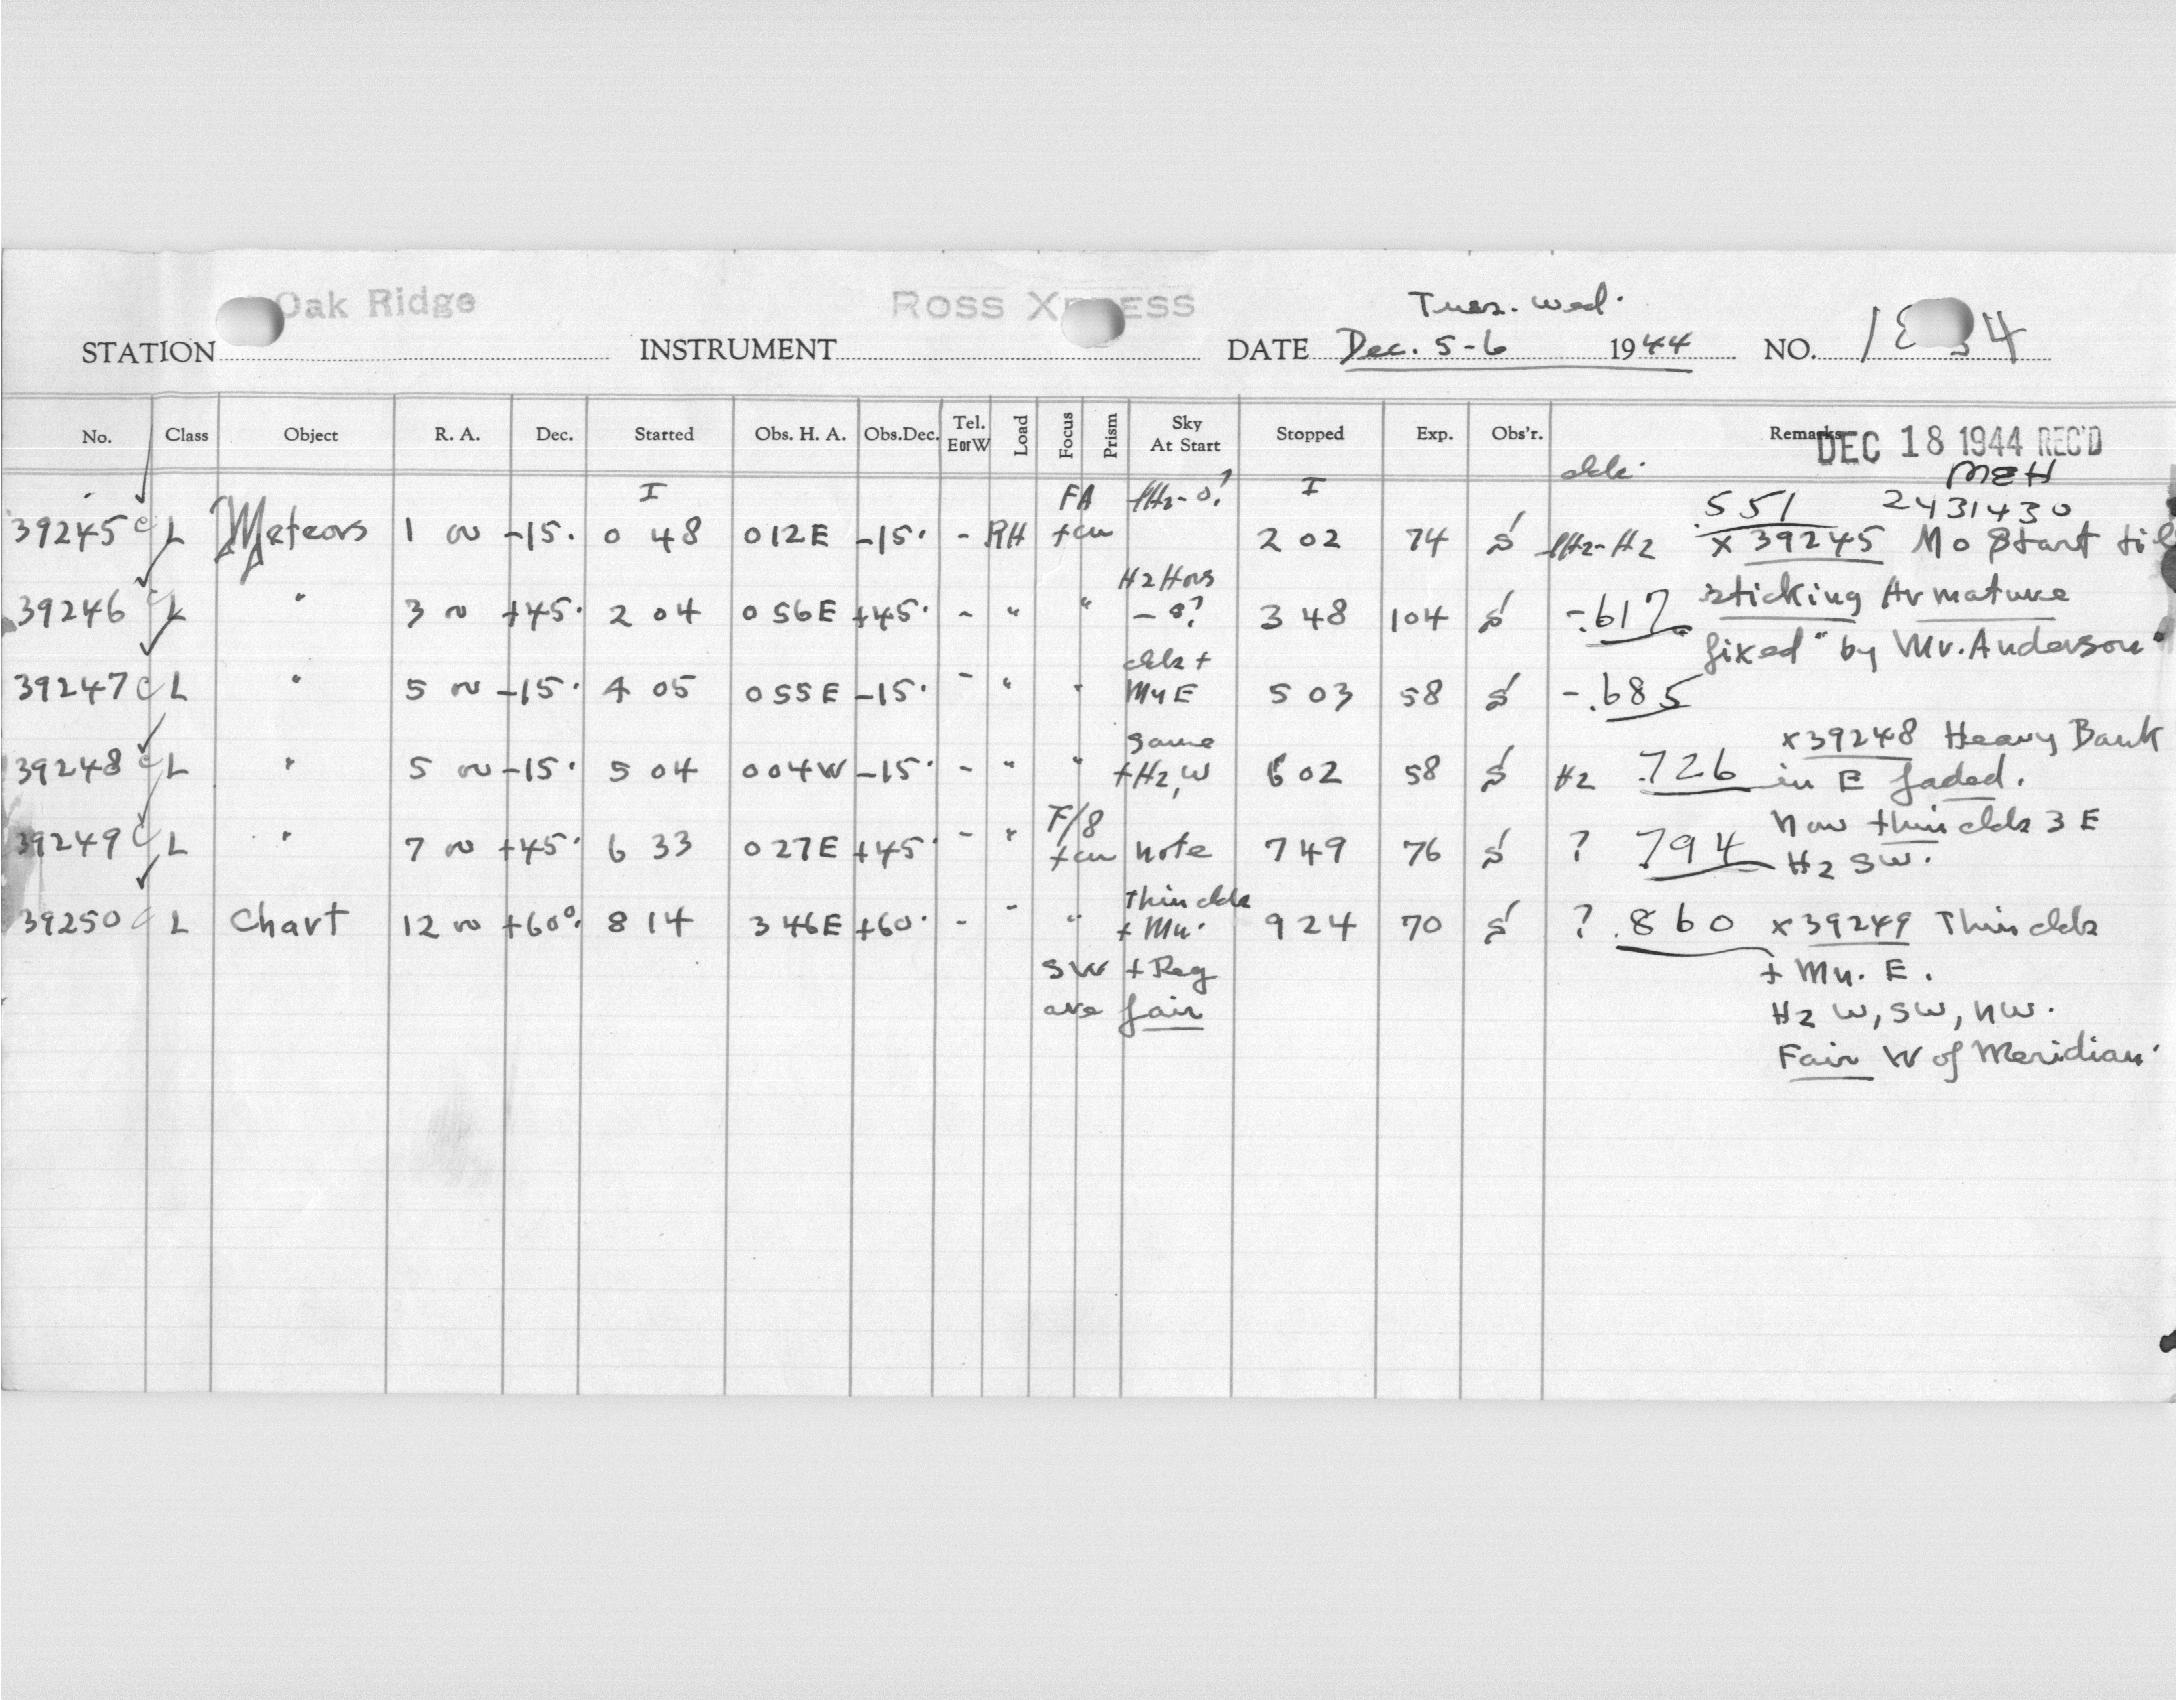 Oak Ridge ROSS XPRESS Tues. Wed.
STATION INSTRUMENT DATE Dec. 5-6 1944 NO.
No. Class Object R. A. Dec. Started Obs. H. A. Obs.Dec. Tel. E or W Load Focus Prism Sky At Start Stopped Exp. Obs'r. Remarks
DEC 18 1944 REC'D
MEH
I FA I .551 2431430
39245 c L Meteors 1 00 -15° 0 48 012E -15° - RH +cu 2 02 74 S x 39245 Mo start til
H2 Hors
39246 c L " 3 00 +45° 2 04 056E +45° - " " - 0? 3 48 104 S -.617 sticking Armature
fixed "by Mr. Anderson"
clds +
39247 c L " 5 00 -15° 4 05 055E -15° - " " Mn E 5 03 58 S -.685
same x39248 Heavy Bank
39248 c L " 5 00 -15° 5 04 004W -15° - " " +Hz, W 6 02 58 S Hz .726 in E faded.
F/8 now thin clds 3 E
39249 c L " 7 00 +45° 6 33 027E +45° - " +cu note 7 49 76 S ? .794 Hz SW.
thin clds
39250 c L Chart 12 00 +60° 8 14 346E +60° - " " + Mn. 9 24 70 S ? .860 x 39249 Thin clds
SW + Reg + Mn. E.
are fair Hz W, SW, NW.
Fair W of Meridian.